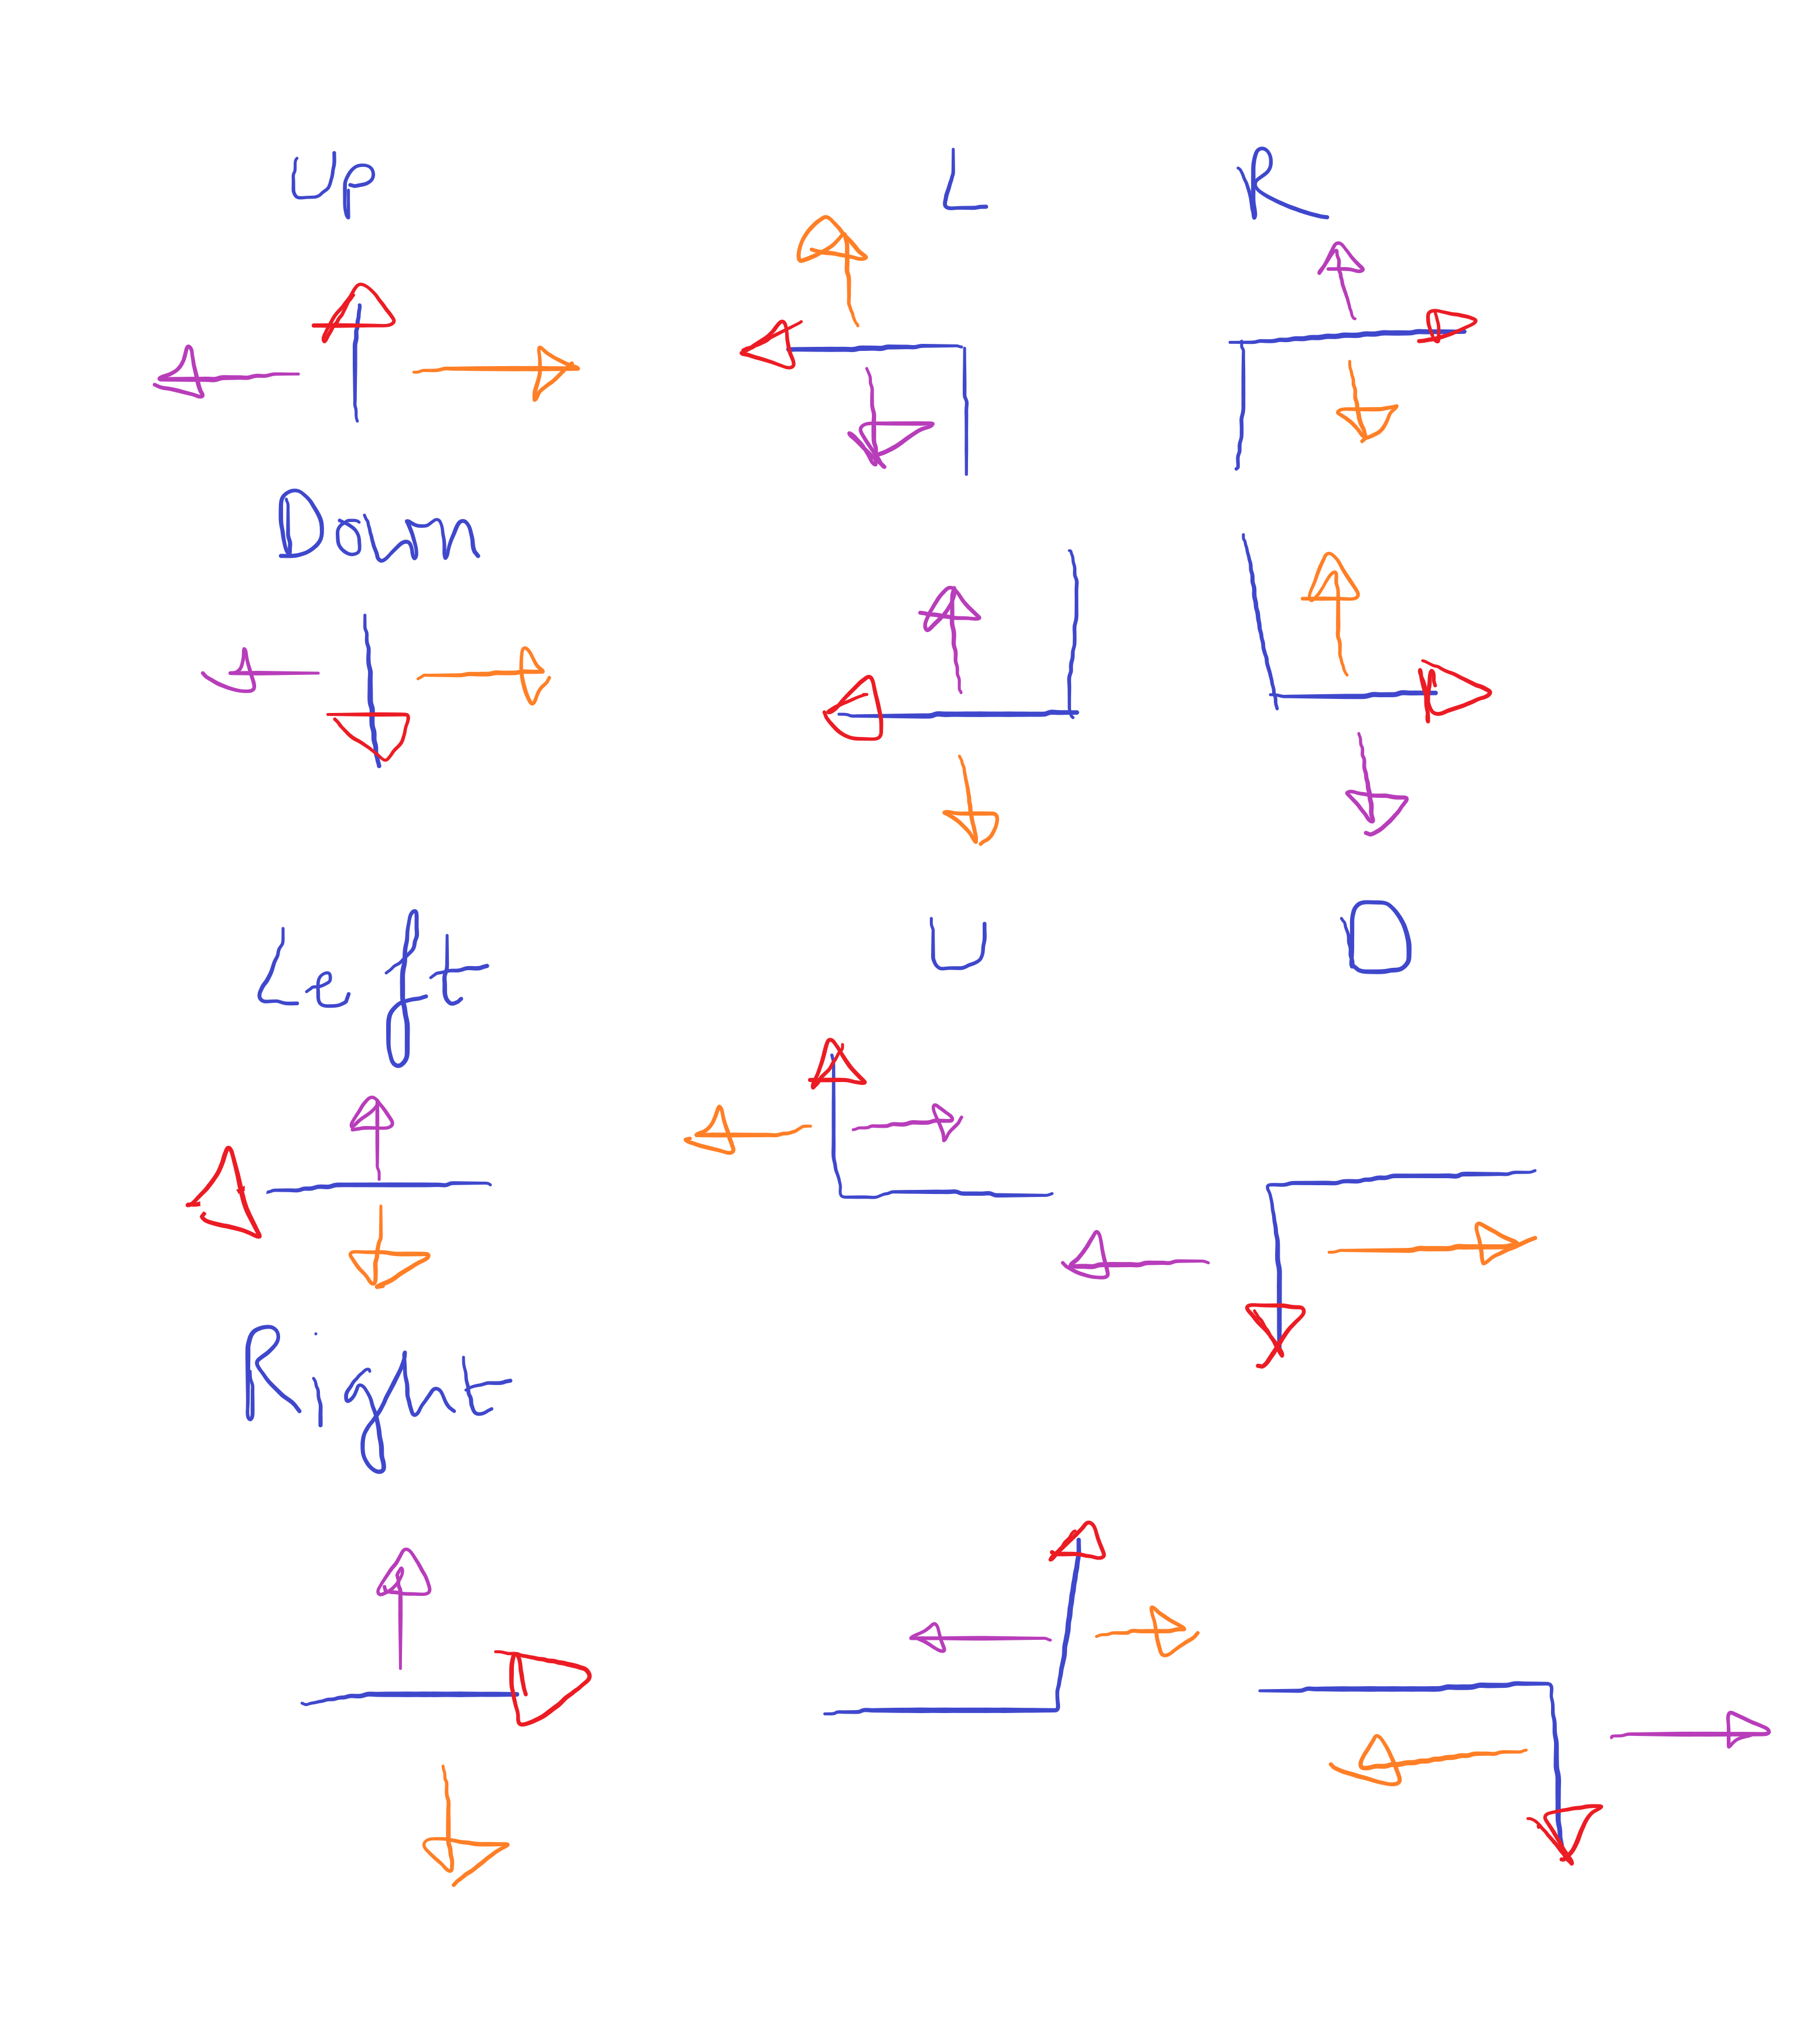 Up L R
Down
Left U D
Right